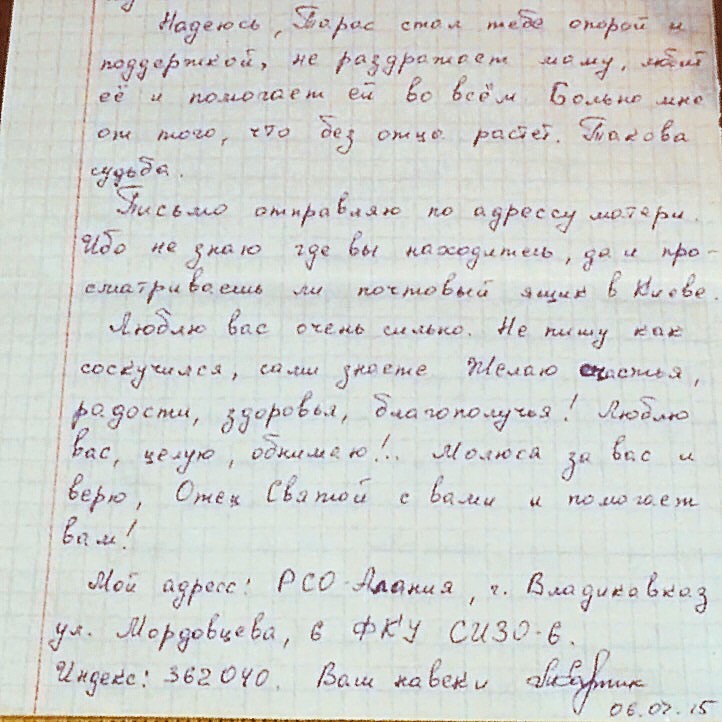 Надеюсь, Тарас стал тебе опорой и
поддержкой, не раздражает маму, любит
её и помогает ей во всём. Больно мне
от того, что без отца растет. Такова
судьба.
Письмо отправляю по адрессу матери.
Ибо не знаю где вы находитесь, да и про-
сматриваешь ли почтовый ящик в Киеве.
Люблю вас очень сильно. Не пишу как
соскучился, сами знаете Желаю счастья,
радости, здоровья, благополучья! Люблю
вас, целую, обнимаю!.. Молюся за вас и
верю, Отец Святой с вами и помогает
вам!
Мой адресс: РСО-Алания, г. Владикавказ
ул. Мордовцева, 6 ФКУ СИЗО-6.
Индекс: 362040. Ваш навеки
06.02.15